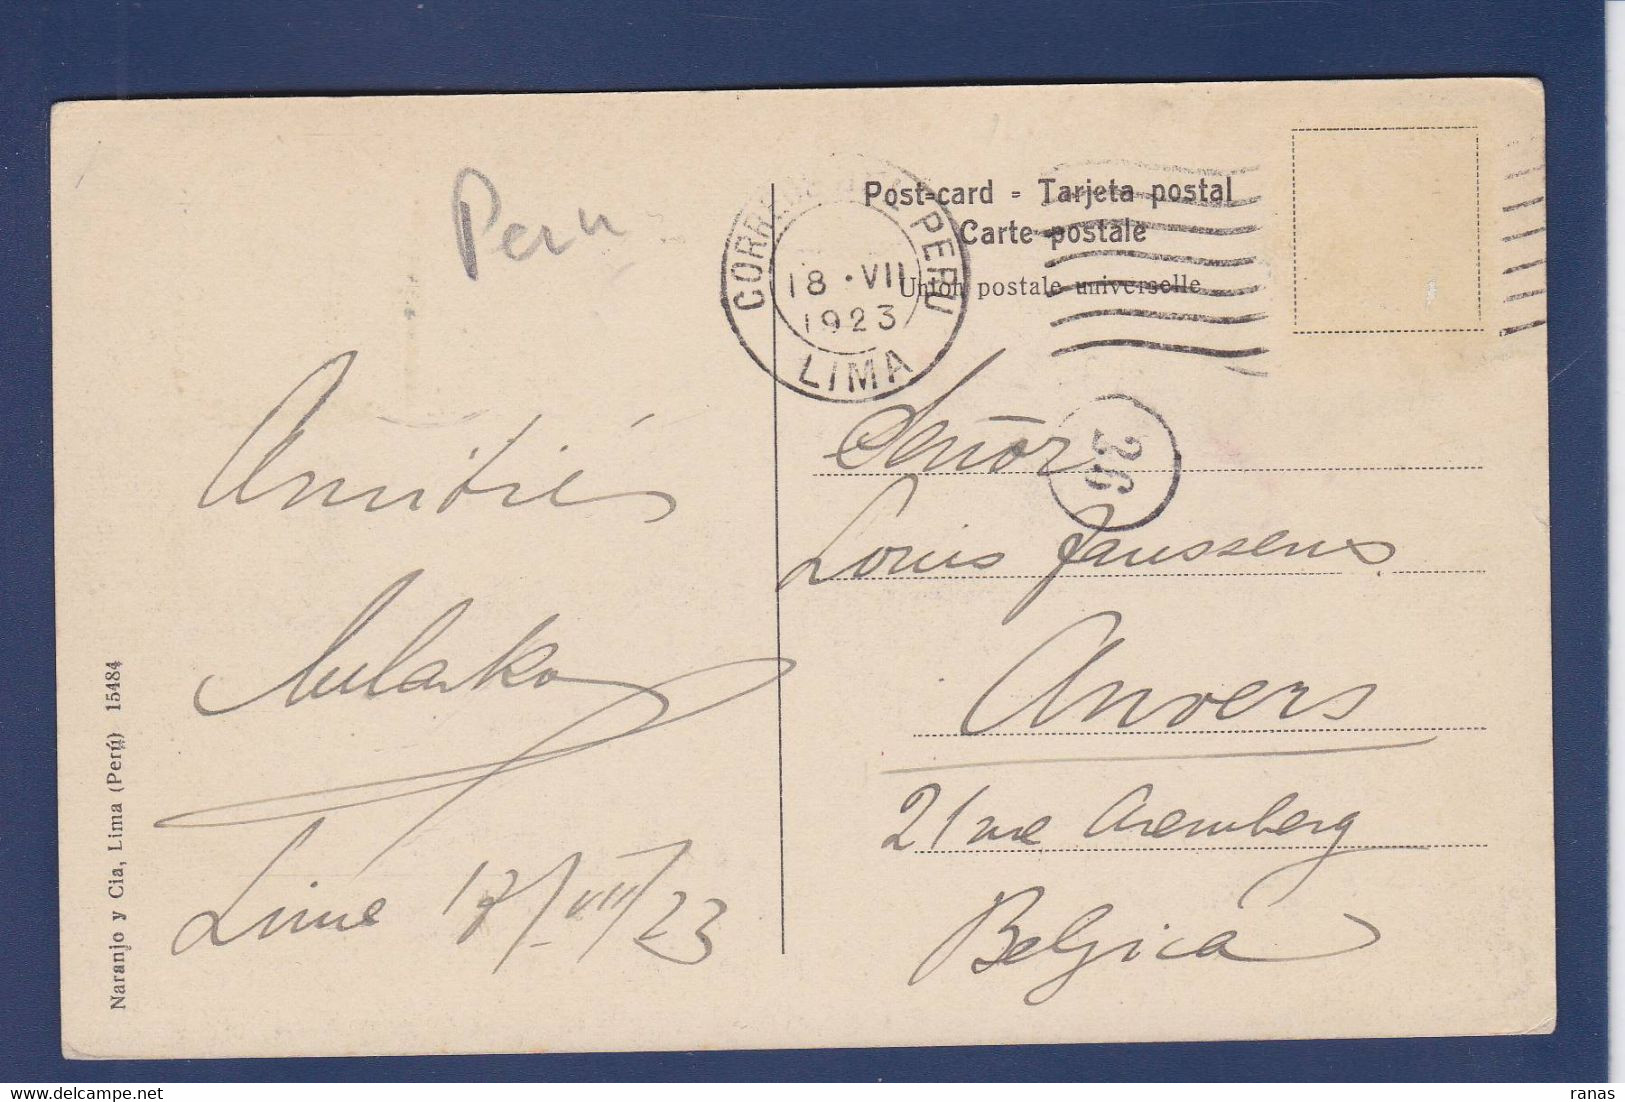 Peru
Post-card - Tarjeta postal
Carte postale
Union postale universelle
CORREOS DEL PERU
18 · VII
1923
LIMA
36
Amitiés
Lima 17/VII/23
Señor
Louis Janssens
Anvers
21 rue Aremberg
Belgica
Naranjo y Cia, Lima (Perú) 15484
ranas